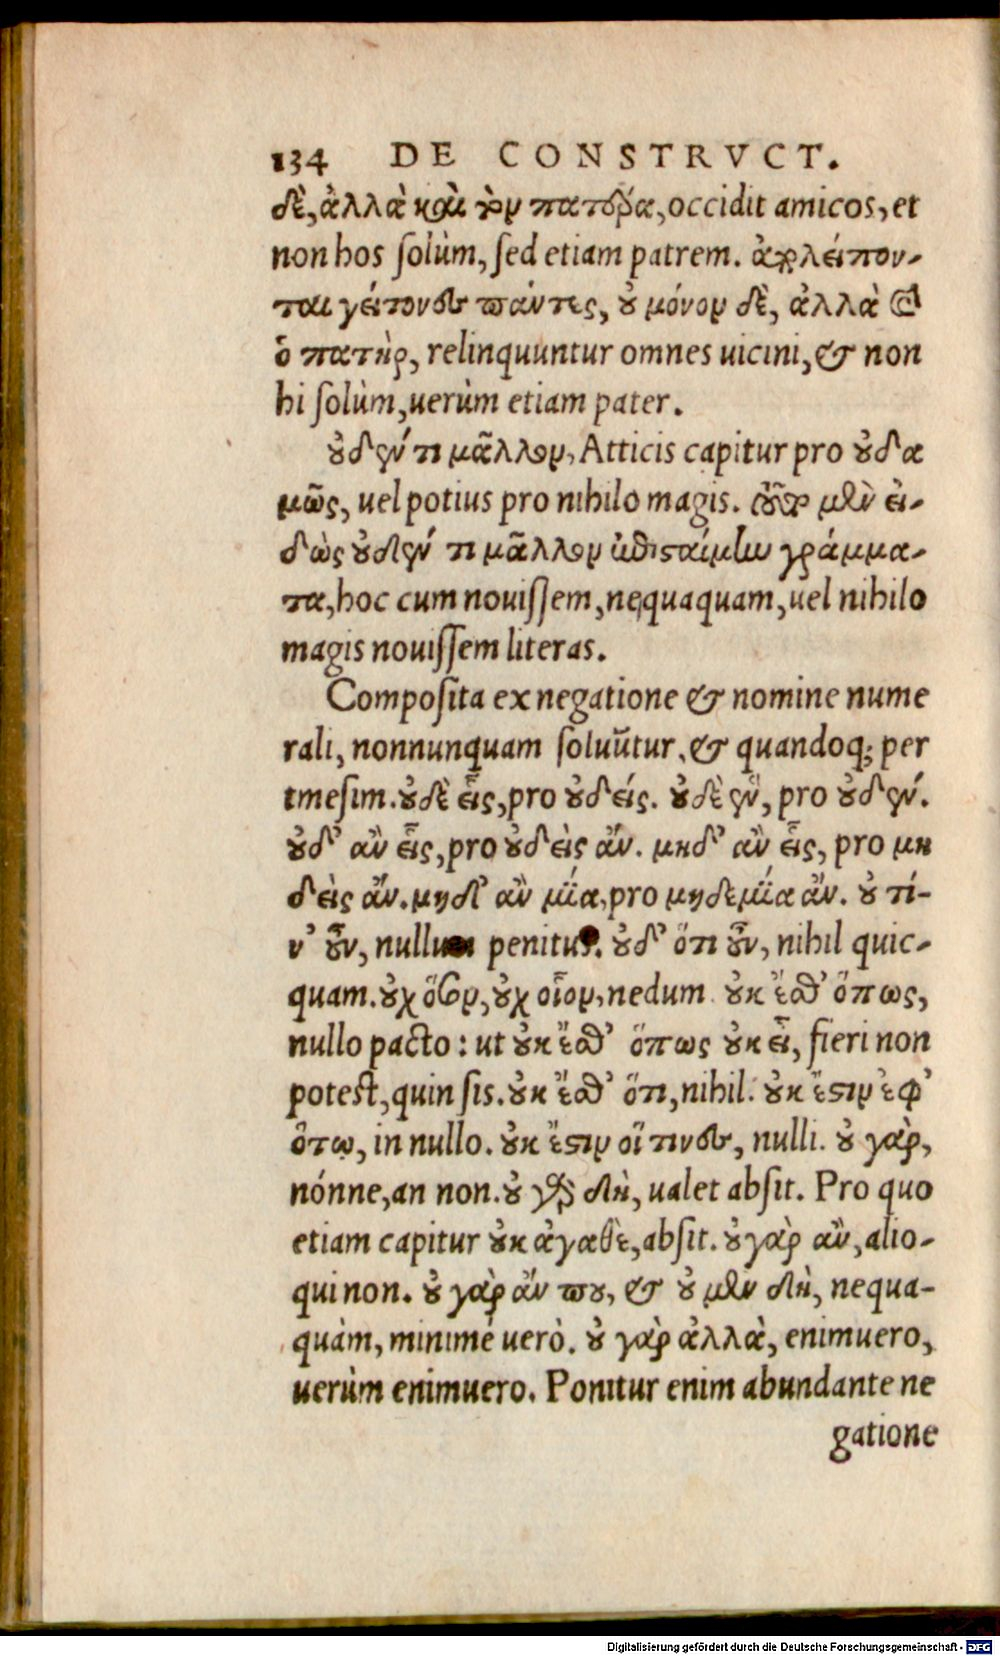 134 DE CONSTRVCT.
δὲ, ἀλλὰ καὶ τὸν πατέρα, occidit amicos, et
non hos ſolùm, ſed etiam patrem. ἀπολείπον-
ται γείτονες πάντες, ȣ μόνον δὲ, ἀλλὰ καὶ
ὁ πατὴρ, relinquuntur omnes uicini, & non
hi ſolùm, uerùm etiam pater.
ȣδέν τι μᾶλλον, Atticis capitur pro ȣδα
μῶς, uel potius pro nihilo magis. τȣ͂το μὲν εἰ-
δὼς ȣδέν τι μᾶλλον ἐπιςαίμην γράμμα-
τα, hoc cum nouiſſem, nequaquam, uel nihilo
magis nouiſſem literas.
Compoſita ex negatione & nomine nume
rali, nonnunquam ſoluũtur, & quandoq; per
tmeſim. ȣδὲ εἷς, pro ȣδείς. ȣδὲ ἓν, pro ȣδέν.
ȣδ' ἂν εἷς, pro ȣδεὶς ἄν. μηδ' ἂν εἷς, pro μη
δεὶς ἄν. μηδ' ἂν μία, pro μηδεμία ἄν. ȣ τί-
ν' ȣ͂ν, nullum penitus. ȣδ' ὅτι ȣ͂ν, nihil quic-
quam. ȣχ ὅσον, ȣχ οἷον, nedum. ȣκ ἔσθ' ὅπως,
nullo pacto: ut ȣκ ἔσθ' ὅπως ȣκ εἶ, fieri non
poteſt, quin ſis. ȣκ ἔσθ' ὅτι, nihil. ȣκ ἔςιν ἐφ'
ὅτῳ, in nullo. ȣκ ἔςιν οἵ τινες, nulli. ȣ γὰρ,
nónne, an non. ȣ γὰρ δὴ, ualet abſit. Pro quo
etiam capitur ȣκ ἀγαθὲ, abſit. ȣ γὰρ ἂν, alio-
qui non. ȣ γὰρ ἄν πȣ, & ȣ μὲν δὴ, nequa-
quàm, minimé uerò. ȣ γὰρ ἀλλὰ, enimuero,
uerùm enimuero. Ponitur enim abundante ne
gatione
Digitalisierung gefördert durch die Deutsche Forschungsgemeinschaft - DFG